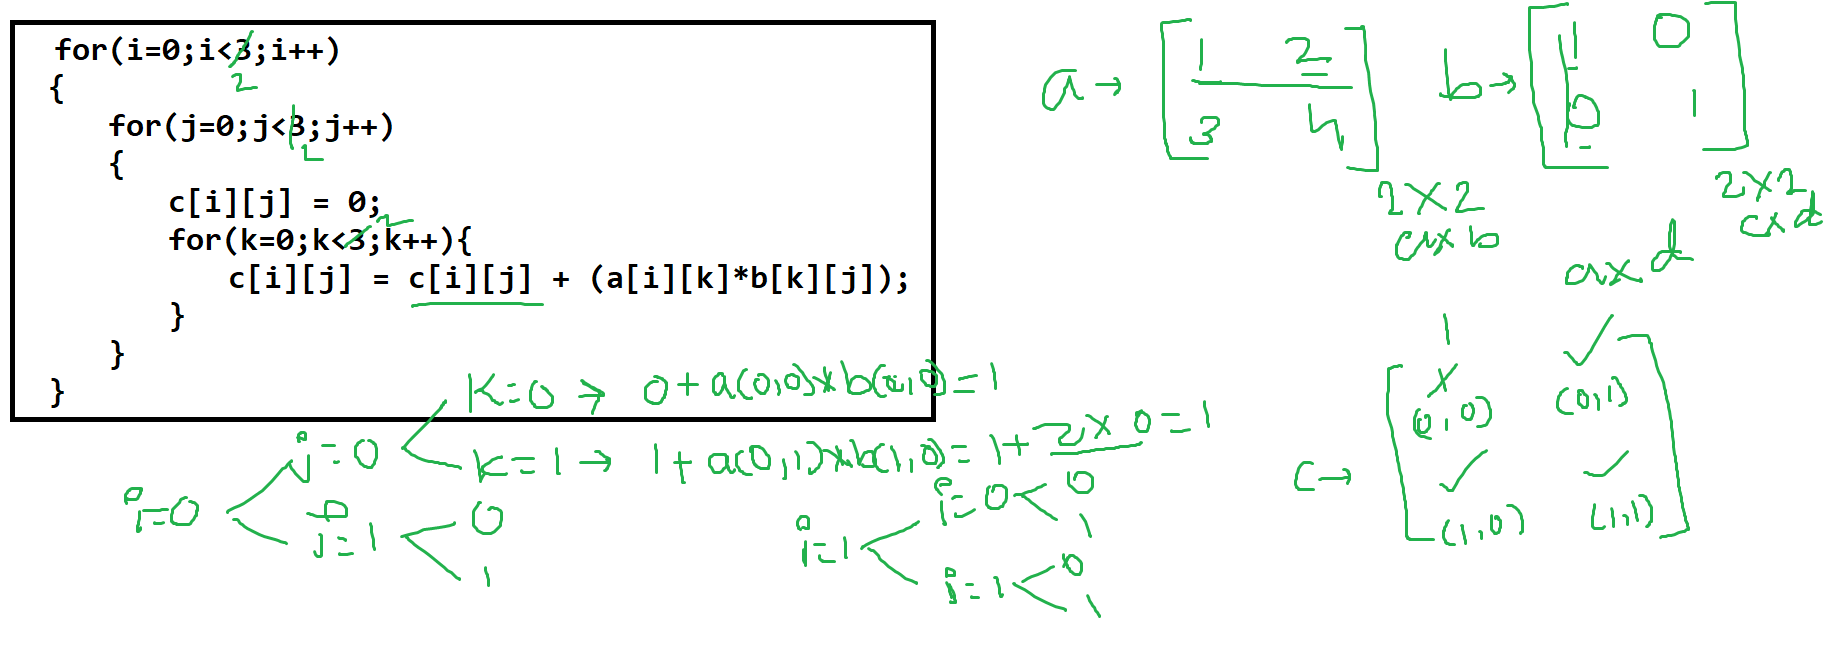 for(i=0;i<3;i++)
2
{
for(j=0;j<3;j++)
2
{
c[i][j] = 0;
for(k=0;k<3;k++){
2
c[i][j] = c[i][j] + (a[i][k]*b[k][j]);
}
}
}
a → 1 2
3 4
2x2
axb
b → 1 0
0 1
2x2
cxd
axd
i=0
j=0
K=0 → 0+a(0,0)xb(0,0)=1
K=1 → 1+a(0,1)xb(1,0)=1+2x0=1
j=1
0
1
i=1
i=0
0
1
i=1
0
1
c →
1
(0,0) (0,1)
(1,0) (1,1)